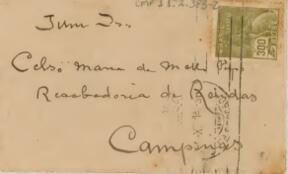 CMP 1.1.2.383-2
Illmo Snr.
Celso Maria de Mello Pupo
Recebedoria de Rendas
Campinas
300